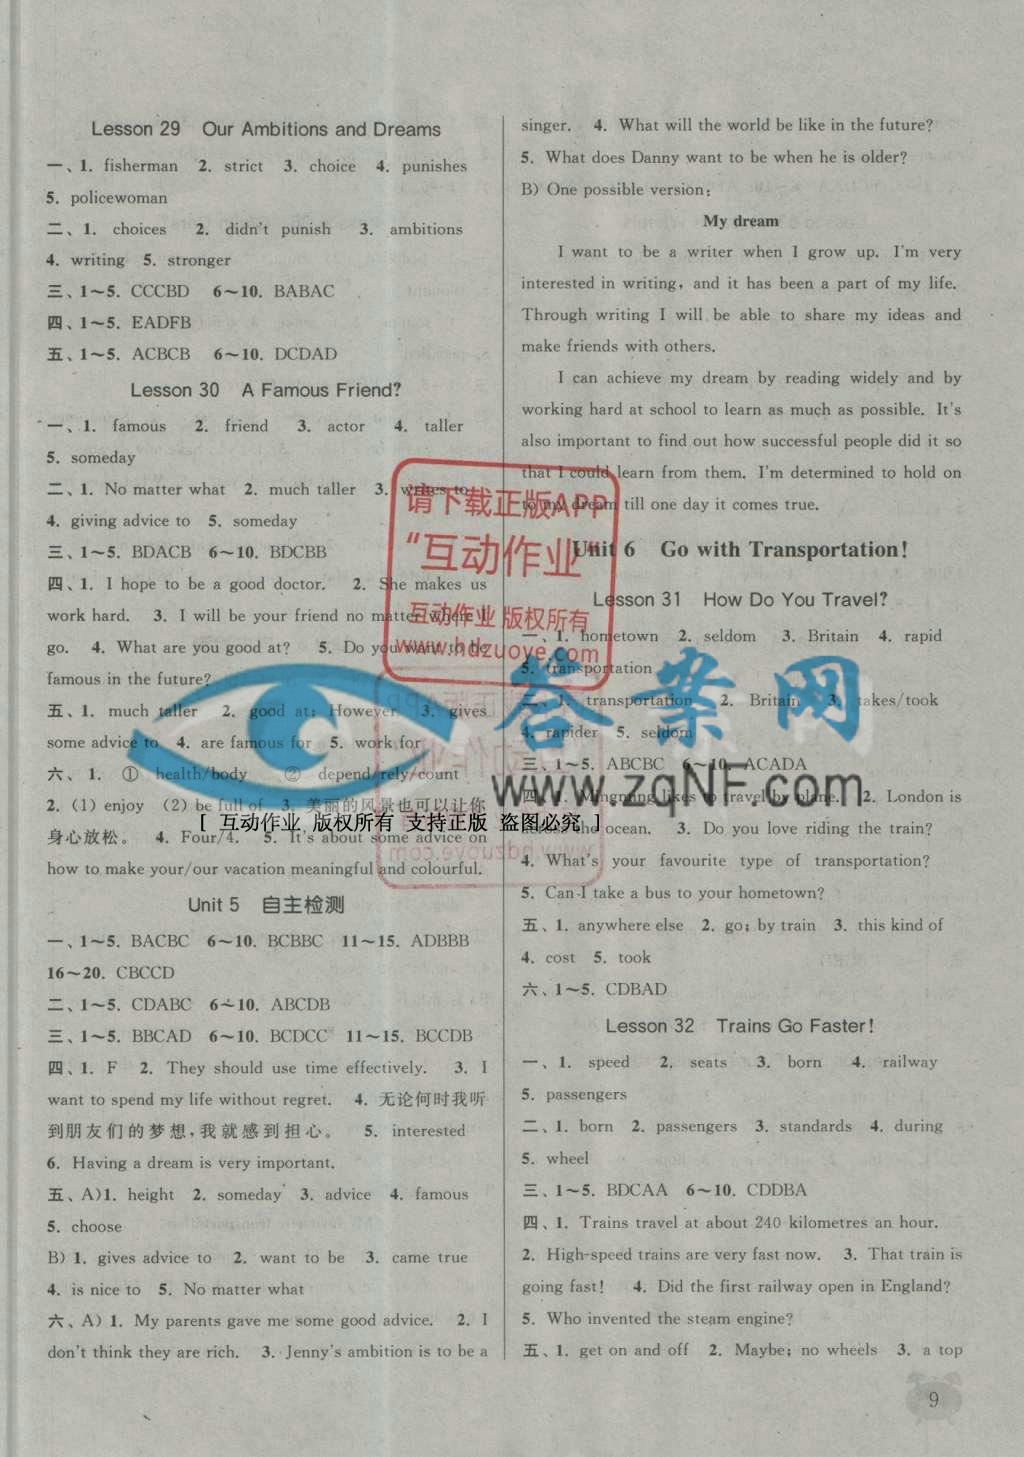 Lesson 29 Our Ambitions and Dreams
一、1. fisherman 2. strict 3. choice 4. punishes
5. policewoman
二、1. choices 2. didn't punish 3. ambitions
4. writing 5. stronger
三、1～5. CCCBD 6～10. BABAC
四、1～5. EADFB
五、1～5. ACBCB 6～10. DCDAD
Lesson 30 A Famous Friend?
一、1. famous 2. friend 3. actor 4. taller
5. someday
二、1. No matter what 2. much taller 3. writes to
4. giving advice to 5. someday
三、1～5. BDACB 6～10. BDCBB
四、1. I hope to be a good doctor. 2. She makes us
work hard. 3. I will be your friend no matter where I
go. 4. What are you good at? 5. Do you want to be
famous in the future?
五、1. much taller 2. good at; However 3. gives
some advice to 4. are famous for 5. work for
六、1. ① health/body ② depend/rely/count
2. (1) enjoy (2) be full of 3. 美丽的风景也可以让你
身心放松。 4. Four/4. 5. It's about some advice on
how to make your/our vacation meaningful and colourful.
Unit 5 自主检测
一、1～5. BACBC 6～10. BCBBC 11～15. ADBBB
16～20. CBCCD
二、1～5. CDABC 6～10. ABCDB
三、1～5. BBCAD 6～10. BCDCC 11～15. BCCDB
四、1. F 2. They should use time effectively. 3. I
want to spend my life without regret. 4. 无论何时我听
到朋友们的梦想,我就感到担心。 5. interested
6. Having a dream is very important.
五、A)1. height 2. someday 3. advice 4. famous
5. choose
B) 1. gives advice to 2. want to be 3. came true
4. is nice to 5. No matter what
六、A) 1. My parents gave me some good advice. 2. I
don't think they are rich. 3. Jenny's ambition is to be a
singer. 4. What will the world be like in the future?
5. What does Danny want to be when he is older?
B) One possible version:
My dream
I want to be a writer when I grow up. I'm very
interested in writing, and it has been a part of my life.
Through writing I will be able to share my ideas and
make friends with others.
I can achieve my dream by reading widely and by
working hard at school to learn as much as possible. It's
also important to find out how successful people did it so
that I could learn from them. I'm determined to hold on
to my dream till one day it comes true.
Unit 6 Go with Transportation!
Lesson 31 How Do You Travel?
一、1. hometown 2. seldom 3. Britain 4. rapid
5. transportation
二、1. transportation 2. Britain 3. takes/took
4. rapider 5. seldom
三、1～5. ABCBC 6～10. ACADA
四、1. Mingming likes to travel by plane. 2. London is
across the ocean. 3. Do you love riding the train?
4. What's your favourite type of transportation?
5. Can I take a bus to your hometown?
五、1. anywhere else 2. go; by train 3. this kind of
4. cost 5. took
六、1～5. CDBAD
Lesson 32 Trains Go Faster!
一、1. speed 2. seats 3. born 4. railway
5. passengers
二、1. born 2. passengers 3. standards 4. during
5. wheel
三、1～5. BDCAA 6～10. CDDBA
四、1. Trains travel at about 240 kilometres an hour.
2. High-speed trains are very fast now. 3. That train is
going fast! 4. Did the first railway open in England?
5. Who invented the steam engine?
五、1. get on and off 2. Maybe; no wheels 3. a top
9
请下载正版APP
“互动作业”
互动作业 版权所有
www.hdzuoye.com
答案网
www.zqNF.com
[ 互动作业 版权所有 支持正版 盗图必究 ]